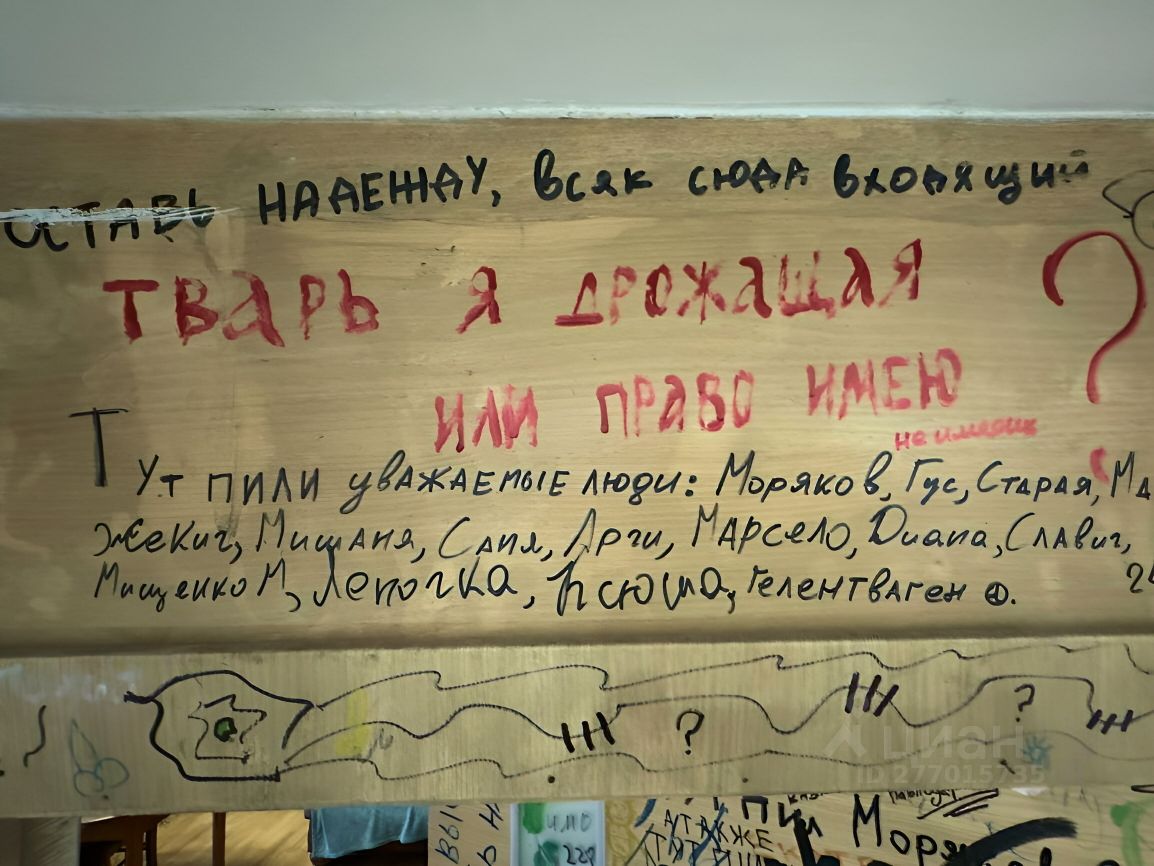 ОСТАВЬ НАДЕЖДУ, всяк сюда входящий
ТВАРЬ Я ДРОЖАЩАЯ
ИЛИ ПРАВО ИМЕЮ ?
не имеешь
Тут пили уважаемые люди: Моряков, Гус, Старая, Ма
Жекич, Мишаня, Саня, Арги, Марсело, Диана, Славич,
Мищенко М, Леночка, Ксюша, Гелентваген
? ?
циан
ID 277015735
пил Моря
А ТАКЖЕ
228